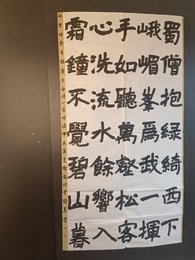 蜀僧抱綠綺西下
峨嵋峯爲我一揮
手如聽萬壑松客
心洗流水餘響入
霜鐘不覺碧山暮